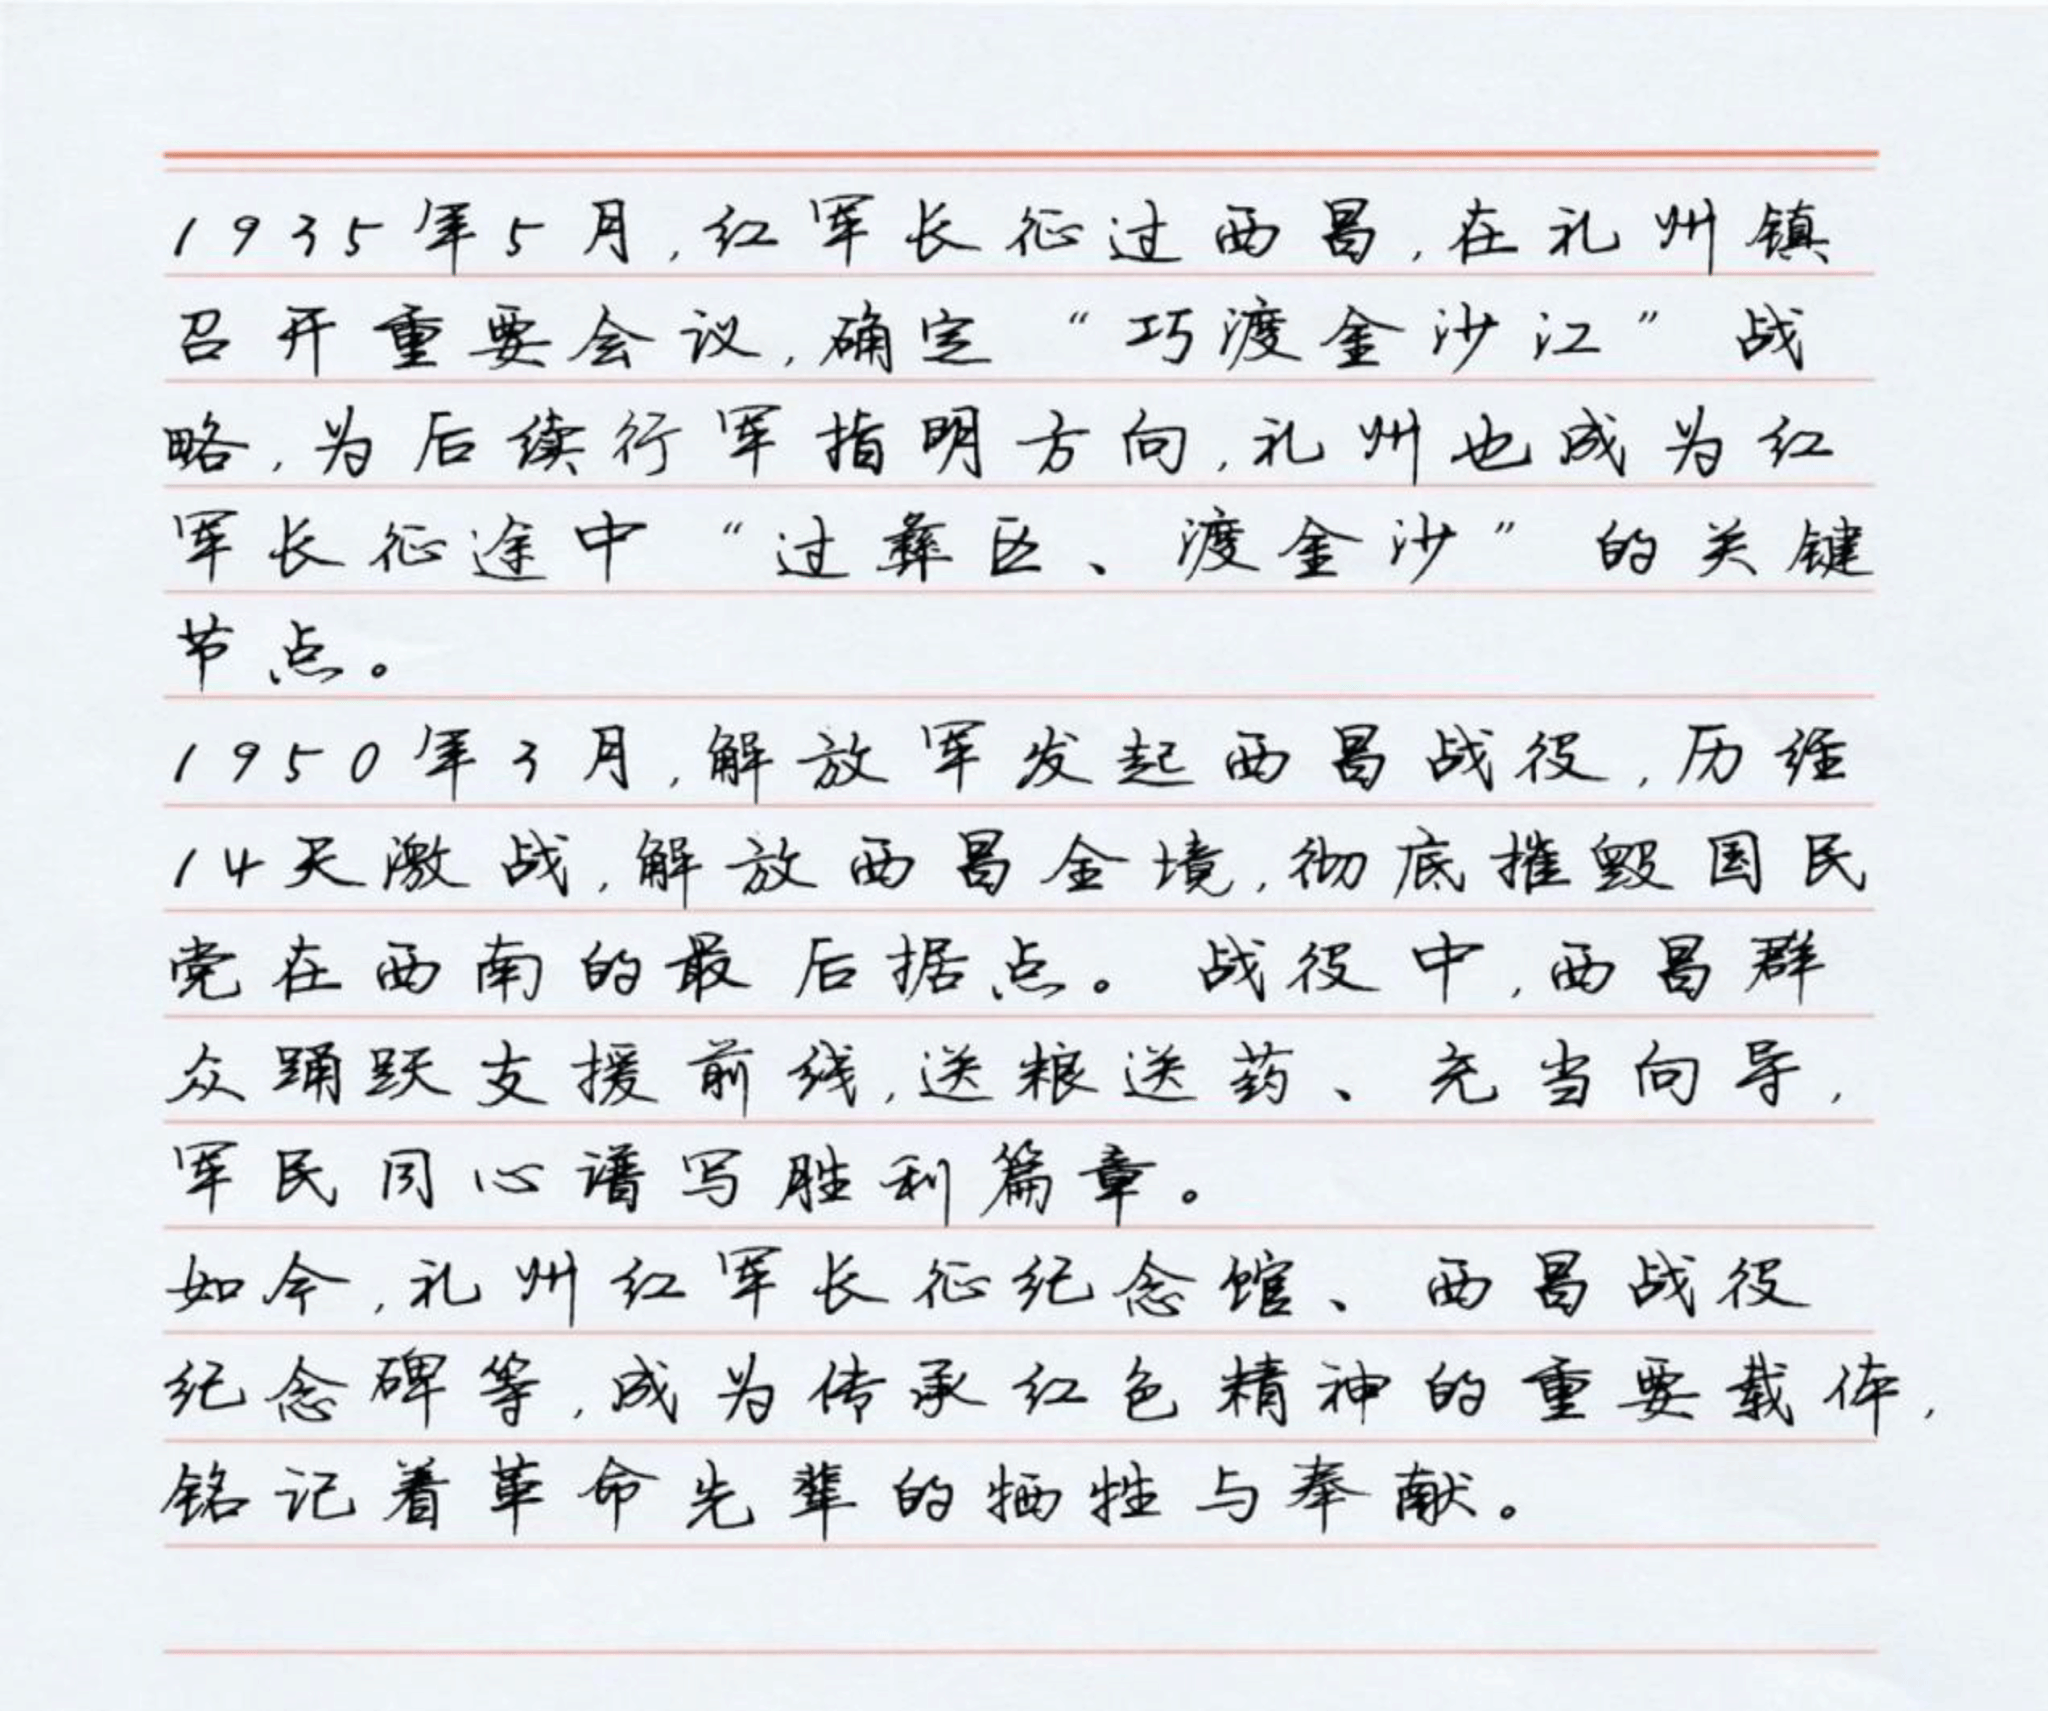 1935年5月,红军长征过西昌,在礼州镇
召开重要会议,确定“巧渡金沙江”战
略,为后续行军指明方向,礼州也成为红
军长征途中“过彝区、渡金沙”的关键
节点。
1950年3月,解放军发起西昌战役,历经
14天激战,解放西昌全境,彻底摧毁国民
党在西南的最后据点。战役中,西昌群
众踊跃支援前线,送粮送药、充当向导,
军民同心谱写胜利篇章。
如今,礼州红军长征纪念馆、西昌战役
纪念碑等,成为传承红色精神的重要载体,
铭记着革命先辈的牺牲与奉献。